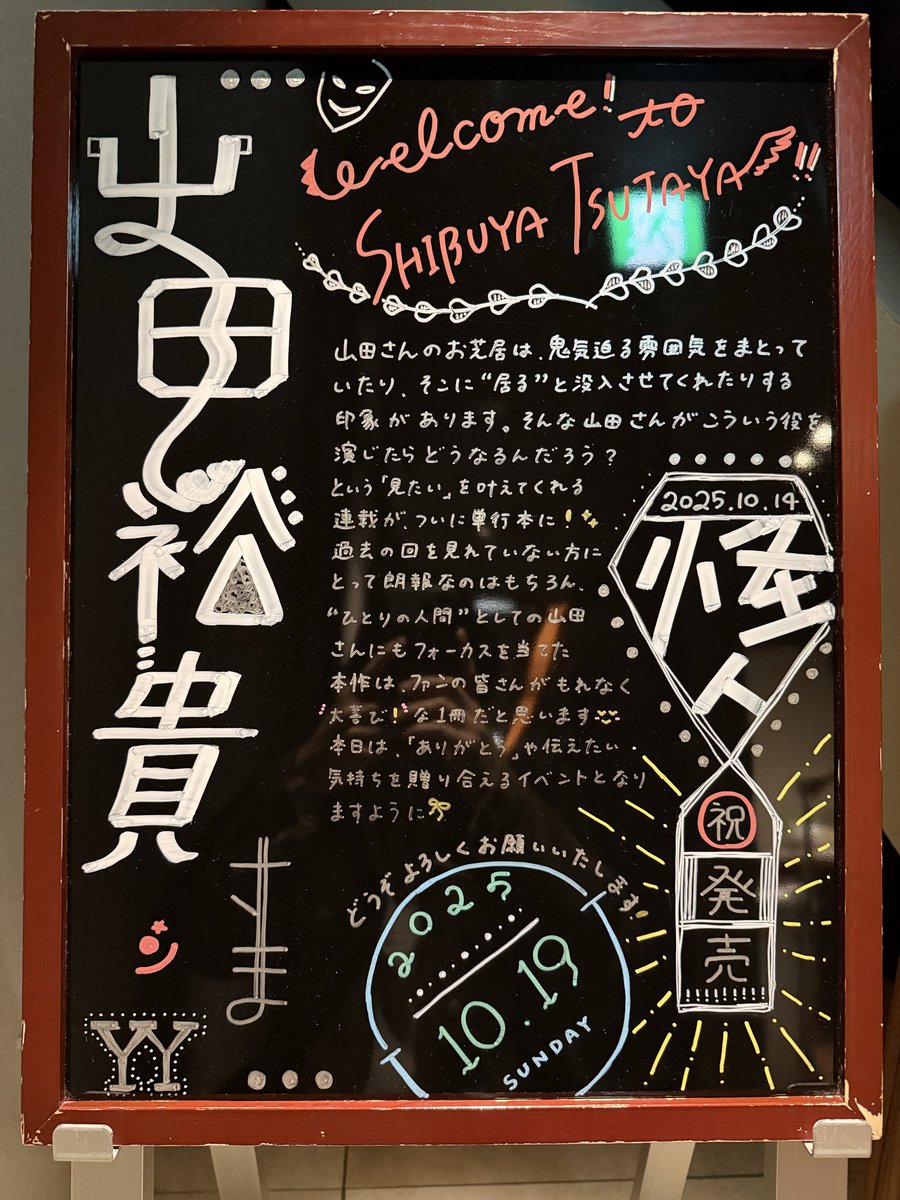 Welcome! to
SHIBUYA TSUTAYA!!
山田裕貴
さま
山田さんのお芝居は、鬼気迫る雰囲気をまとって
いたり、そこに"居る"と没入させてくれたりする
印象があります。そんな山田さんがこういう役を
演じたらどうなるんだろう?
という「見たい」を叶えてくれる
連載がついに単行本に!
過去の回を見れていない方に
とって朗報なのはもちろん、
"ひとりの人間"としての山田
さんにもフォーカスを当てた
本作は、ファンの皆さんがもれなく
大喜び!な1冊だと思います
本日は、「ありがとう」や伝えたい
気持ちを贈り合えるイベントとなり
ますように
どうぞよろしくお願いいたします!
2025.10.14
怪人
祝
発
売
2025
10.19
SUNDAY
YY